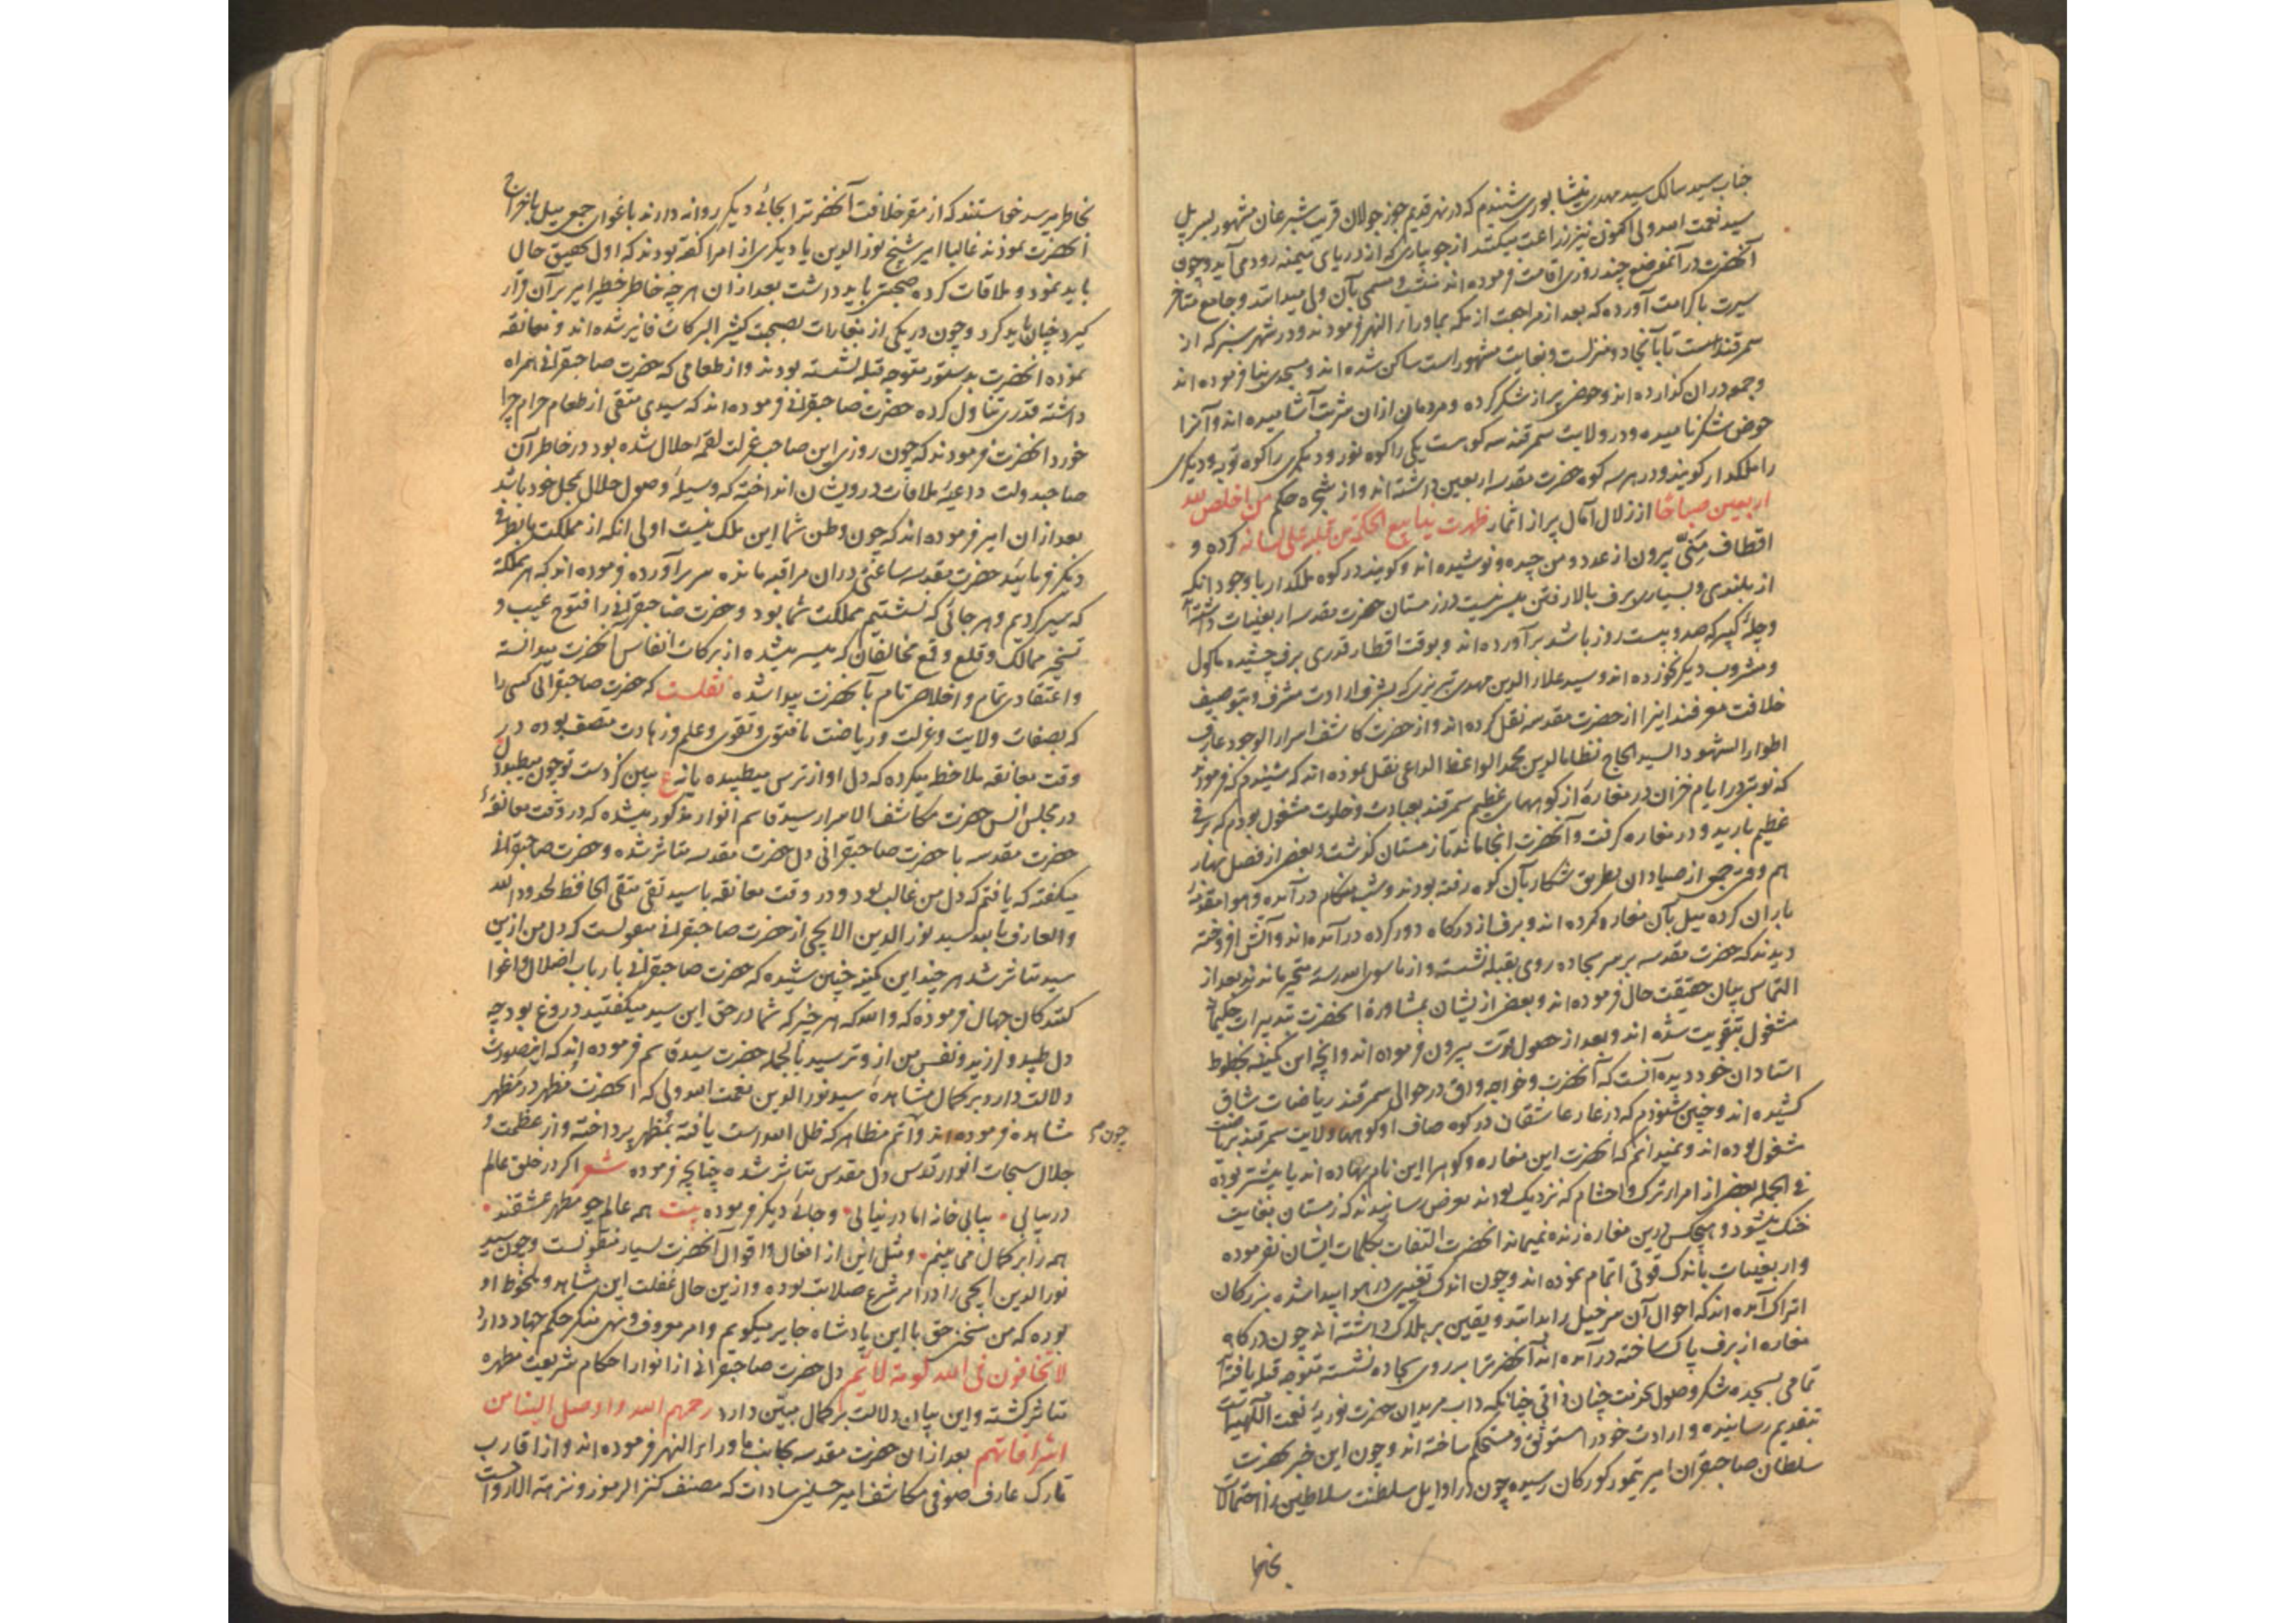 جناب سید سالک سید مهدی نیشابوری شنیدم که در نهر قدیم جوزجولان قریب شبرغان مشهور بسرپل
سید نعمت الله ولی اکنون نیز زراعت میکنند از جویباری که از دریای میمنه رود می آید و چون
آنحضرت در آنموضع چند روزی اقامت فرموده اند منتسب و مسمی بآن ولی میدانند و جامع مآثر
سیرت با کرامت آورده که بعد از مراجعت از مکه بماوراء النهر فرمودند و در شهر سبز که از
سمرقند است تا بآنجا دو منزلست و بغایت مشهور است ساکن شده اند و مسجدی بنا فرموده اند
و جمعه در ان گذارده اند و حوض پر از شکر کرده و مردمان ازان شربت آشامیده اند و آنرا
حوض شکر نامیده و در ولایت سمرقند سه کوست یکی را کوه نور و دیگری را کوه توبه و دیگری
را ملکدار گویند و در هر سه کوه حضرت مقدسه اربعین داشته اند و از شجره حکم من اخلص لله
اربعین صباحا از زلال آمال پر از اثمار ظهرت ینابیع الحکمة من قلبه علی لسانه کرده و
اقطاف بیرون از عدد و من چیده و نوشیده اند و گویند در کوه ملکدار با وجود انکه
از بلندی و بسیاری برف بالا رفتن میسر نیست در زمستان حضرت مقدسه اربعینات داشته
و چله کبیر که صد و بیست روز باشد بر آورده اند و بوقت افطار قدری برف چشیده ماکول
و مشروب دیگر نخورده اند و سید علاء الدین مهدی تبریزی که بشرف ارادت مشرف و بتوصیف
خلافت معرفند اینرا از حضرت مقدسه نقل کرده اند و از حضرت کاشف اسرار الوجود عارف
اطوار الشهود السید الحاج نظام الدین محمد الواعظ الداعی نقل نموده اند که شنیدم که فرمودند
که نوبتی در ایام خزان در مغاره از کوههای عظیم سمرقند بعبادت و خلوت مشغول بودم که برفی
عظیم بارید و در مغاره گرفت و آنحضرت انجا ماند تا زمستان گذشت و بعضی از فصل بهار
هم و فتی جمعی از صیادان بطریق شکار بآن کوه رفته بودند و شب هنگام در آمده و هوا
باران کرده میل بآن مغاره کرده اند و برف از درگاه دور کرده در آمده اند و آتش افروخته
دیدند که حضرت مقدسه بر سر سجاده روی بقبله نشسته و از ما سوی الله رسته متحیر ماندند بعد از
التماس بیان حقیقت حال فرموده اند و بعضی از یشان بمشاورة انحضرت تدبیرات حکیمانه
مشغول بتقویت شده اند و بعد از حصول قوت بیرون فرموده اند و انچه این کمینه بخطوط
استادان خود دیده آنست که آنحضرت و خواجه در حوالی سمرقند ریاضات شاق
کشیده اند و چنین شنودم که در غار عاشقان در کوه صاف و کوههای ولایت سمرقند بریاضت
مشغول بوده اند و نمیدانم که انحضرت این مغاره و کوهها را این نام نهاده اند یا پیشتر بوده
فی الجمله بعضی از امراء ترک و احشام که نزدیک بودند بعرض رسانیدند که زمستان بغایت
خنک میشود و هیچکس درین مغاره زنده نمیماند انحضرت التفات بکلمات ایشان نفرموده
و اربعینیات باندک قوتی اتمام نموده اند و چون اندک تغییری در هوا پیدا شده بزرگان
اتراک آمده اند که احوال آن سرخیل را بدانند و یقین بر هلاک داشته اند چون درگاه
مغاره از برف پاک ساخته در آمده اند آنحضرترا بر روی سجاده نشسته متوجه قبله یافته
تمامی بسجده شکر وصول چنانکه داب مریدان حضرت نوریه نعمت اللهیه است
بتقدیم رسانیده و ارادت خود را مستوثق و مستحکم ساخته اند و چون این خبر بحضرت
سلطان صاحبقران امیر تیمور کورکان رسیده چون در اوایل سلطنت سلاطین را احتمالات
بخاطر
بخاطر میرسد خواستند که از مقر خلافت آنحضرترا بجائی دیگر روانه دارند باغوای جمعی میل باخراج
آنحضرت نمودند غالبا امیر شیخ نور الدین یا دیگری از امرا گفته بودند که اول تحقیق حال
باید نمود و ملاقات کرده صحبتی باید داشت بعد از ان هر چه خاطر خطیر امیر بر آن قرار
گیرد چنان باید کرد و چون در یکی از مغارات بصحبت کثیر البرکات فایز شده اند و معانقه
نموده انحضرت بدستور متوجه قبله نشسته بودند و از طعامی که حضرت صاحبقرانی همراه
داشته قدری تناول کرده حضرت صاحبقرانی فرموده اند که سیدی متقی از طعام حرام چرا
خورد انحضرت فرمودند که چون روزی این صاحب عزلت لقمه حلال شده بود در خاطر آن
صاحبدولت داعیه ملاقات درویشان انداخته که وسیله وصول حلال بمحل خود باشد
بعد از ان امیر فرموده اند که چون وطن شما این ملک نیست اولی انکه از مملکت ما بطرفی
دیگر فرمایید حضرت مقدسه ساعتی در ان مراقبه مانده سر بر آورده فرموده اند که هر مملکة
که سیر کردیم و هر جائی که نشستیم مملکت شما بود و حضرت صاحبقرانی را فتوح غیب و
تسخیر ممالک و قلع و قمع مخالفان که میسر میشده از برکات انفاس آنحضرت میدانسته
و اعتقادی تمام و اخلاص تام بآنحضرت پیدا شده نقلست که حضرت صاحبقرانی کسی را
که بصفات ولایت و عزلت و ریاضت با فتوی و تقوی و علم و زهادت متصف بوده در
وقت معانقه ملاحظه میکرده که دل او از ترس میطپیده یا نه ع ببین کز دست تو چون میطپد دل
در مجلس انس حضرت مکاشف الاسرار سید قاسم انوار مذکور میشده که در وقت معانقه
حضرت مقدسه با حضرت صاحبقرانی دل حضرت مقدسه متاثر شده و حضرت صاحبقرانی
میگفته که یافتم که دل من غالب بود و در وقت معانقه با سید تقی متقی الحافظ لحدود الله
و العارف بالله سید نور الدین الایجی از حضرت صاحبقرانی منقولست که دل من ازین
سید متاثر شد هر چند این کمینه چنین شنیده که حضرت صاحبقرانی با ارباب اضلال و اغوا
کنندگان جهال فرموده که والله که هر چیز که شما در حق این سید میگفتید دروغ بود چه
دل طپید و لرزید و نفس من از و ترسید بالجمله حضرت سید قاسم فرموده اند که اینصورت
دلالت دارد بر کمال مشاهدۀ سید نور الدین نعمت الله ولی که انحضرت مظهر در مظهر
مشاهده فرموده اند و اتم مظاهر که ظل الله است یافته بمظهر پرداخته و از عظمت و
چون
جلال سبحات انوار قدس دل مقدس متاثر شده چنانچه فرموده شعر اگر در خلق عالم
در بیابی بیابی خانه اما در نیابی و جائی دیگر فرموده بیت همه عالم چو مظهر عشقند
همه را بر کمال می بینم و مثل این از افعال و اقوال آنحضرت بسیار منقولست و چون سید
نور الدین ایجی را در امر شرع صلابت بوده و ازین حال غفلت این مشاهد و ملحوظ او
بوده که من سخن حق با این پادشاه جایر میگویم و امر معروف و نهی منکر حکم جهاد دارد
لا تخافون فی الله لومة لائم دل حضرت صاحبقرانی از انوار احکام شریعت مطهره
متاثر گشته و این بیان دلالت بر کمال مبین دارد رحمهم الله و اوصل الینا من
اشراقاتهم بعد از ان حضرت مقدسه بجانب ماوراء النهر فرموده اند و از اقارب
تارک عارف صوفی مکاشف امیر حسینی سادات که مصنف کنز الرموز و نزهة الارواحست